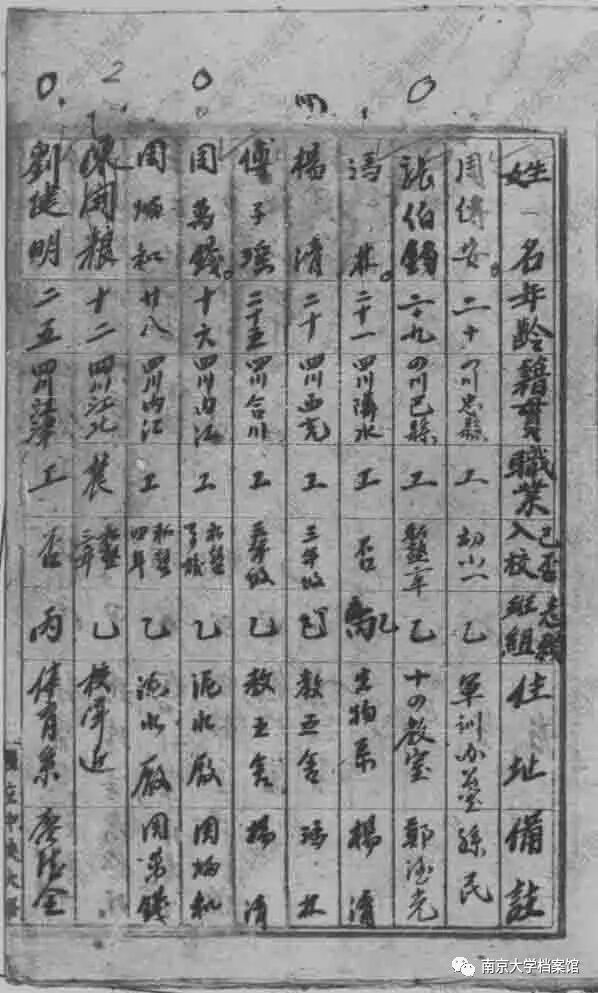 姓名 年齡 籍貫 職業 已否入校 志願班組 住址 備註
二十 四川忠縣 工 初小 乙 軍訓办公室 孫民
張伯鈞 二十九 四川巴縣 工 私塾一年 乙 十四教室 鄭浩元
馮林 二十一 四川隣水 工 否 乙 生物系 楊清
楊清 二十 四川西充 工 三年級 乙 教五舍 馮林
傅子瑶 二十五 四川合川 工 乙 教五舍 楊清
周萬錢 十六 四川内江 工 私塾 乙 泥水廠 周炳和
周炳和 廿八 四川内江 工 私塾四年 乙 泥水廠 周萬錢
十二 四川江北 農 私塾三年 乙 校洋近
劉建明 二五 四川江津 工 否 丙 体育系
國立中央大學
南京大学档案馆